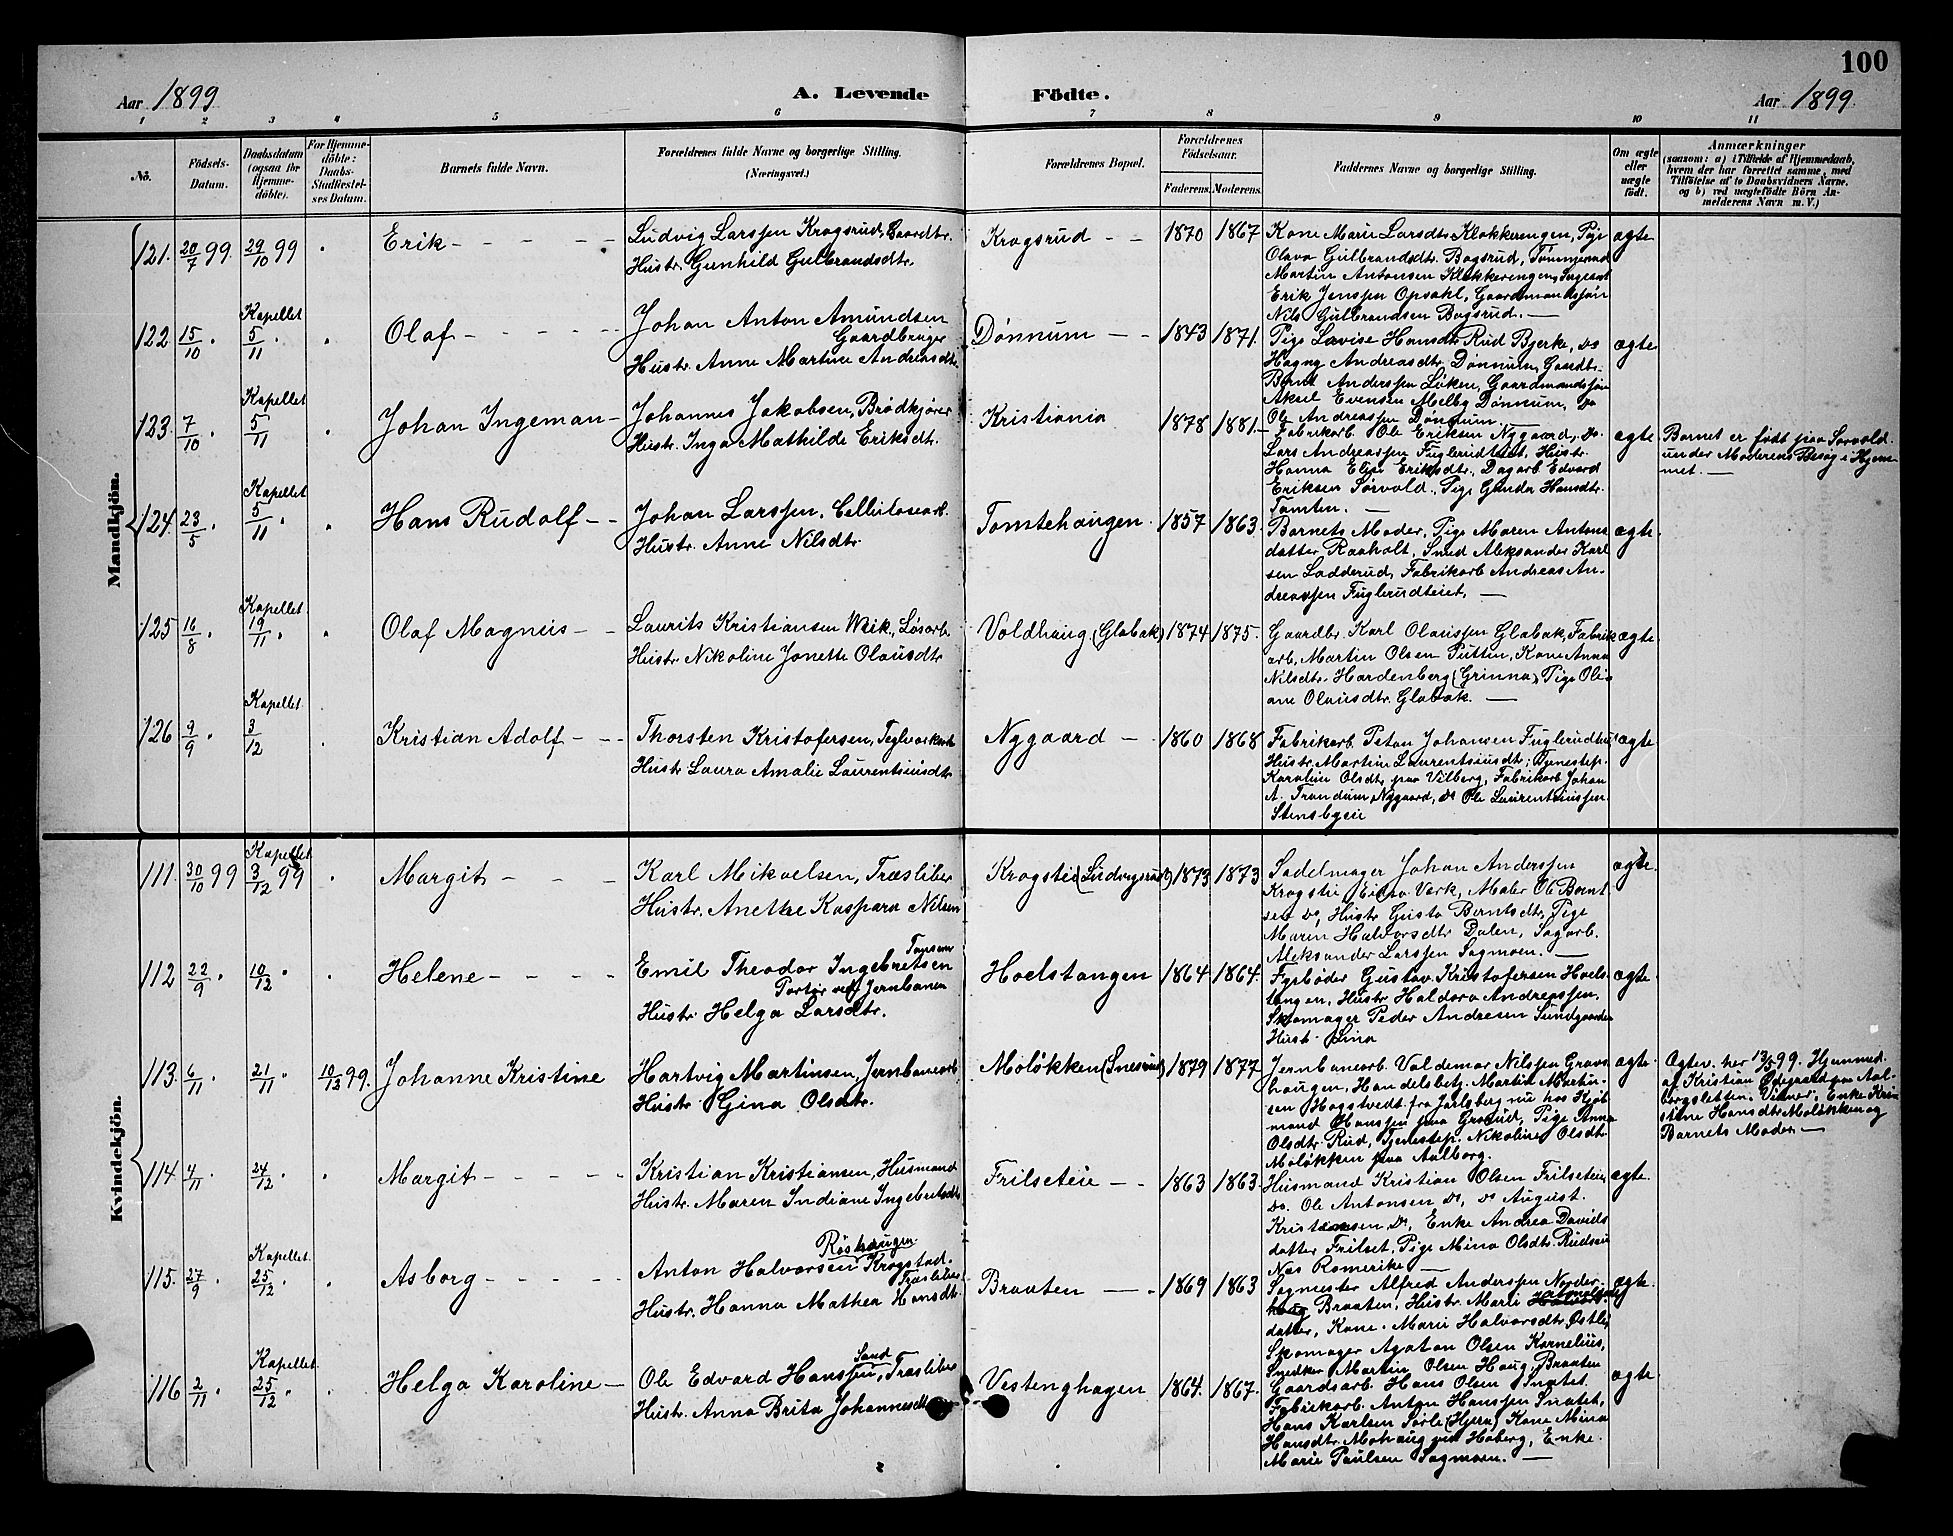 100
Aar 1899
A. Levende Födte.
Aar 1899
1 2 3 4 5 6 7 8 9 10 11
No.
Födsels-Datum.
Daabsdatum (ogsaa for Hjemme-döbte).
For Hjemme-döbte: Daabs-Stadfæstel-ses Datum.
Barnets fulde Navn.
Forældrenes fulde Navne og borgerlige Stilling.
(Næringsvei.)
Forældrenes Bopæl.
Forældrenes Födselsaar.
Faderens. Moderens.
Faddernes Navne og borgerlige Stilling.
Om ægte eller uægte födt.
Anmærkninger
(saasom: a) i Tilfælde af Hjemmedaab,
hvem der har forrettet samme, med
Tilföielse af to Daabsvidners Navne,
og b) ved uægtefödte Börn An-
melderens Navn m. V.)
Mandkjön.
121. 20/7 99. 29/10 99 Erik
Ludvig Larssen Krogsrud, Gaardbr.
Hustr. Gunhild Gulbrandsdtr.
Krogsrud 1870 1867
Kone Marie Larsdtr. Klokkerengen, Pige
Olava Gulbrandsdtr. Bogsrud, Tømmermd
Martin Antonsen Klokkerengen, Sagarb.
Erik Jenssen Opsahl, Gaardmandssøn
Nils Gulbrandsen Bogsrud.
ægte
122 15/10 Kapellet 5/11 Olaf
Johan Anton Amundsen
Gaardbruger
Hustr. Anne Martine Andreasdtr.
Dønnum 1843 1871.
Pige Lovise Hansdtr. Rud Bjerke, do
Hagny Andreasdtr. Dønnum, Gaardbr.
Bernt Anderssen Løken, Gaardmandssøn
Aksel Evensen Melby Dønnum, do
Ole Andreassen Dønnum.
ægte
123. 7/10 Kapellet 5/11 Johan Ingeman
Johannes Jakobsen, Brødkjører
Hustr. Inga Mathilde Eriksdtr.
Kristiania 1878 1881.
Fabrikarb. Ole Eriksen Nygaard, do.
Lars Andreassen Fuglerudteiet, Hustr.
Hanna Elise Eriksdtr., Dagarb. Edvard
Eriksen Sørvold, Pige Gunda Hansdtr.
Tomten.
ægte
Barnet er født paa Sørvold
under Moderens Besøg i Hjem-
met.
124. 23/5 Kapellet 5/11 Hans Rudolf
Johan Larssen, Cellulosearb.
Hustr. Anne Nilsdtr.
Tomtehaugen 1857 1863
Barnets Moder, Pige Maren Antons
datter Raaholt, Smed Aleksander Karl
sen Ladderud, Fabrikarb Andreas An-
dreassen Fuglerudteiet.
ægte
125 16/8 Kapellet 19/11 Olaf Magnus
Laurits Kristiansen Wiik, Løsarb.
Hustr. Nikoline Jonette Olausdtr.
Voldhaug (Globak) 1874 1875.
Gaardbr. Karl Olaussen Globak, Fabrik
arb. Martin Olsen Putten, Kone Anna
Nilsdtr. Hardenberg (Grinna), Pige Oli-
ane Olausdtr. Globak.
ægte
126 9/9 Kapellet 3/12 Kristian Adolf
Thorsten Kristofersen, Teglværksarb
Hustr. Laura Amalie Laurentsiusdtr
Nygaard 1860 1868
Fabrikarb. Johansen Fuglerudteiet
Hustr. Martine Laurentsiusdtr; Tjenestep.
Karoline Olsdtr. paa Vilberg, Fabrikarb Johan
A. Trandum, Nygaard, do Ole Laurentsiussen
Stensbyeie
ægte
Kvindekjön.
111. 30/10 99 Kapellet 3/12 99 Margit
Karl Mikaelsen, Træsliber
Hustr. Anette Kaspara Nilsen
Krogstie (Ludvigsrud) 1873 1873
Sadelmager Johan Anderssen
Krogstie, Eidsv. Værk, Maler Ole Bernt
sen do, Hustr. Gusta Berntsdtr, Pige
Maren Halvorsdtr Dalen, Sagarb.
Aleksander Larssen Sagmoen.
ægte
112 22/9 10/12 Helene
Emil Theodor Ingebretsen Tansem
Portør ved Jernbanen
Hustr. Helga Larsdtr.
Hoelstangen 1864 1864.
Fyrbøder Gustav Kristofersen Hoels-
tangen, Hustr. Haldora Andreassen,
Skomager Peder Andresen Sundgaarden
Hustr. Lina
ægte
113. 6/11 21/11 10/12 99. Johanne Kristine
Hartvig Martinsen, Jernbanearb
Hustr. Gina Olsdtr.
Moløkken (Snerud) 1879 1877
Jernbanearb. Valdemar Nilssen Gravs
haugen, Handelsbetj. Martin Martin-
sen Hogstvedt fra Jarlsberg nu hos Kjøb-
mand Hanssen paa Grøsud, Pige Anna
Olsdtr. Rud, Tjenestep. Nikoline Olsdtr.
Moløkken paa Aalborg.
ægte
Ægtev. her 13/5 99. Hjemmed.
af Kristian Ødegaard paa Aal-
borgsletten. Vidner: Enke Kri-
stine Hansdtr Moløkken og
Barnets Moder
114 4/11 24/12 Margit
Kristian Kristiansen, Husmand
Hustr. Maren Indiane Ingebretsdtr
Frilseteie 1863 1863
Husmand Kristian Olsen Frilseteie
do. Ole Antonsen do, do August.
Kristiansen do, Enke Andrea Davids
datter Frilset, Pige Mina Olsdtr. Rudseie
Nes Romerike
ægte
115. 27/9 Kapellet 25/12 Asborg
Røshaugen
Anton Halvorsen Krogstad. Træsliber
Hustr. Hanna Mathea Hansdtr.
Braaten 1869 1863
Sagmester Alfred Anderssen Norder-
haug Braaten, Hustr. Marie
datter, Kone Marie Halvorsdtr. Østli,
Skomager Agaton Olsen Kornelius,
Snedker Martin Olsen Haug, Braaten
ægte.
116 2/11 Kapellet 25/12 Helga Karoline
Ole Edvard Hanssen Sand, Træsliber
Hustr. Anna Brita Johannesdtr
Vestenghagen 1864. 1867.
Gaardsarb. Hans Olsen Snatet,
Fabrikarb. Anton Hanssen Snatet,
Hans Karlsen Sørli (Hjera) Kone Mina
Hansdtr. Mohaug ved Hoberg, Enke
Marie Paulsen Sagmoen.
ægte